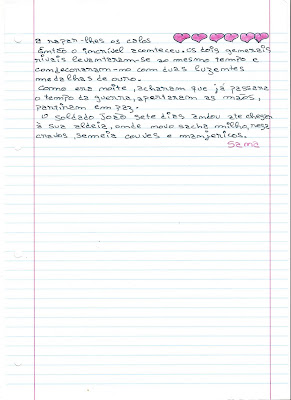 a rapar-lhes os calos
Então o incrível aconteceu. os dois generais
rivais levantaram-se ao mesmo tempo e
condecoraram-no com duas luzentes
medalhas de ouro.
Como era noite, acharam que já passara
o tempo da guerra, apertaram as mãos,
partiram em paz.
O soldado João sete dias andou até chegar
à sua aldeia, onde novo sacha milho, rega
cravos, semeia couves e manjericos.
Sama